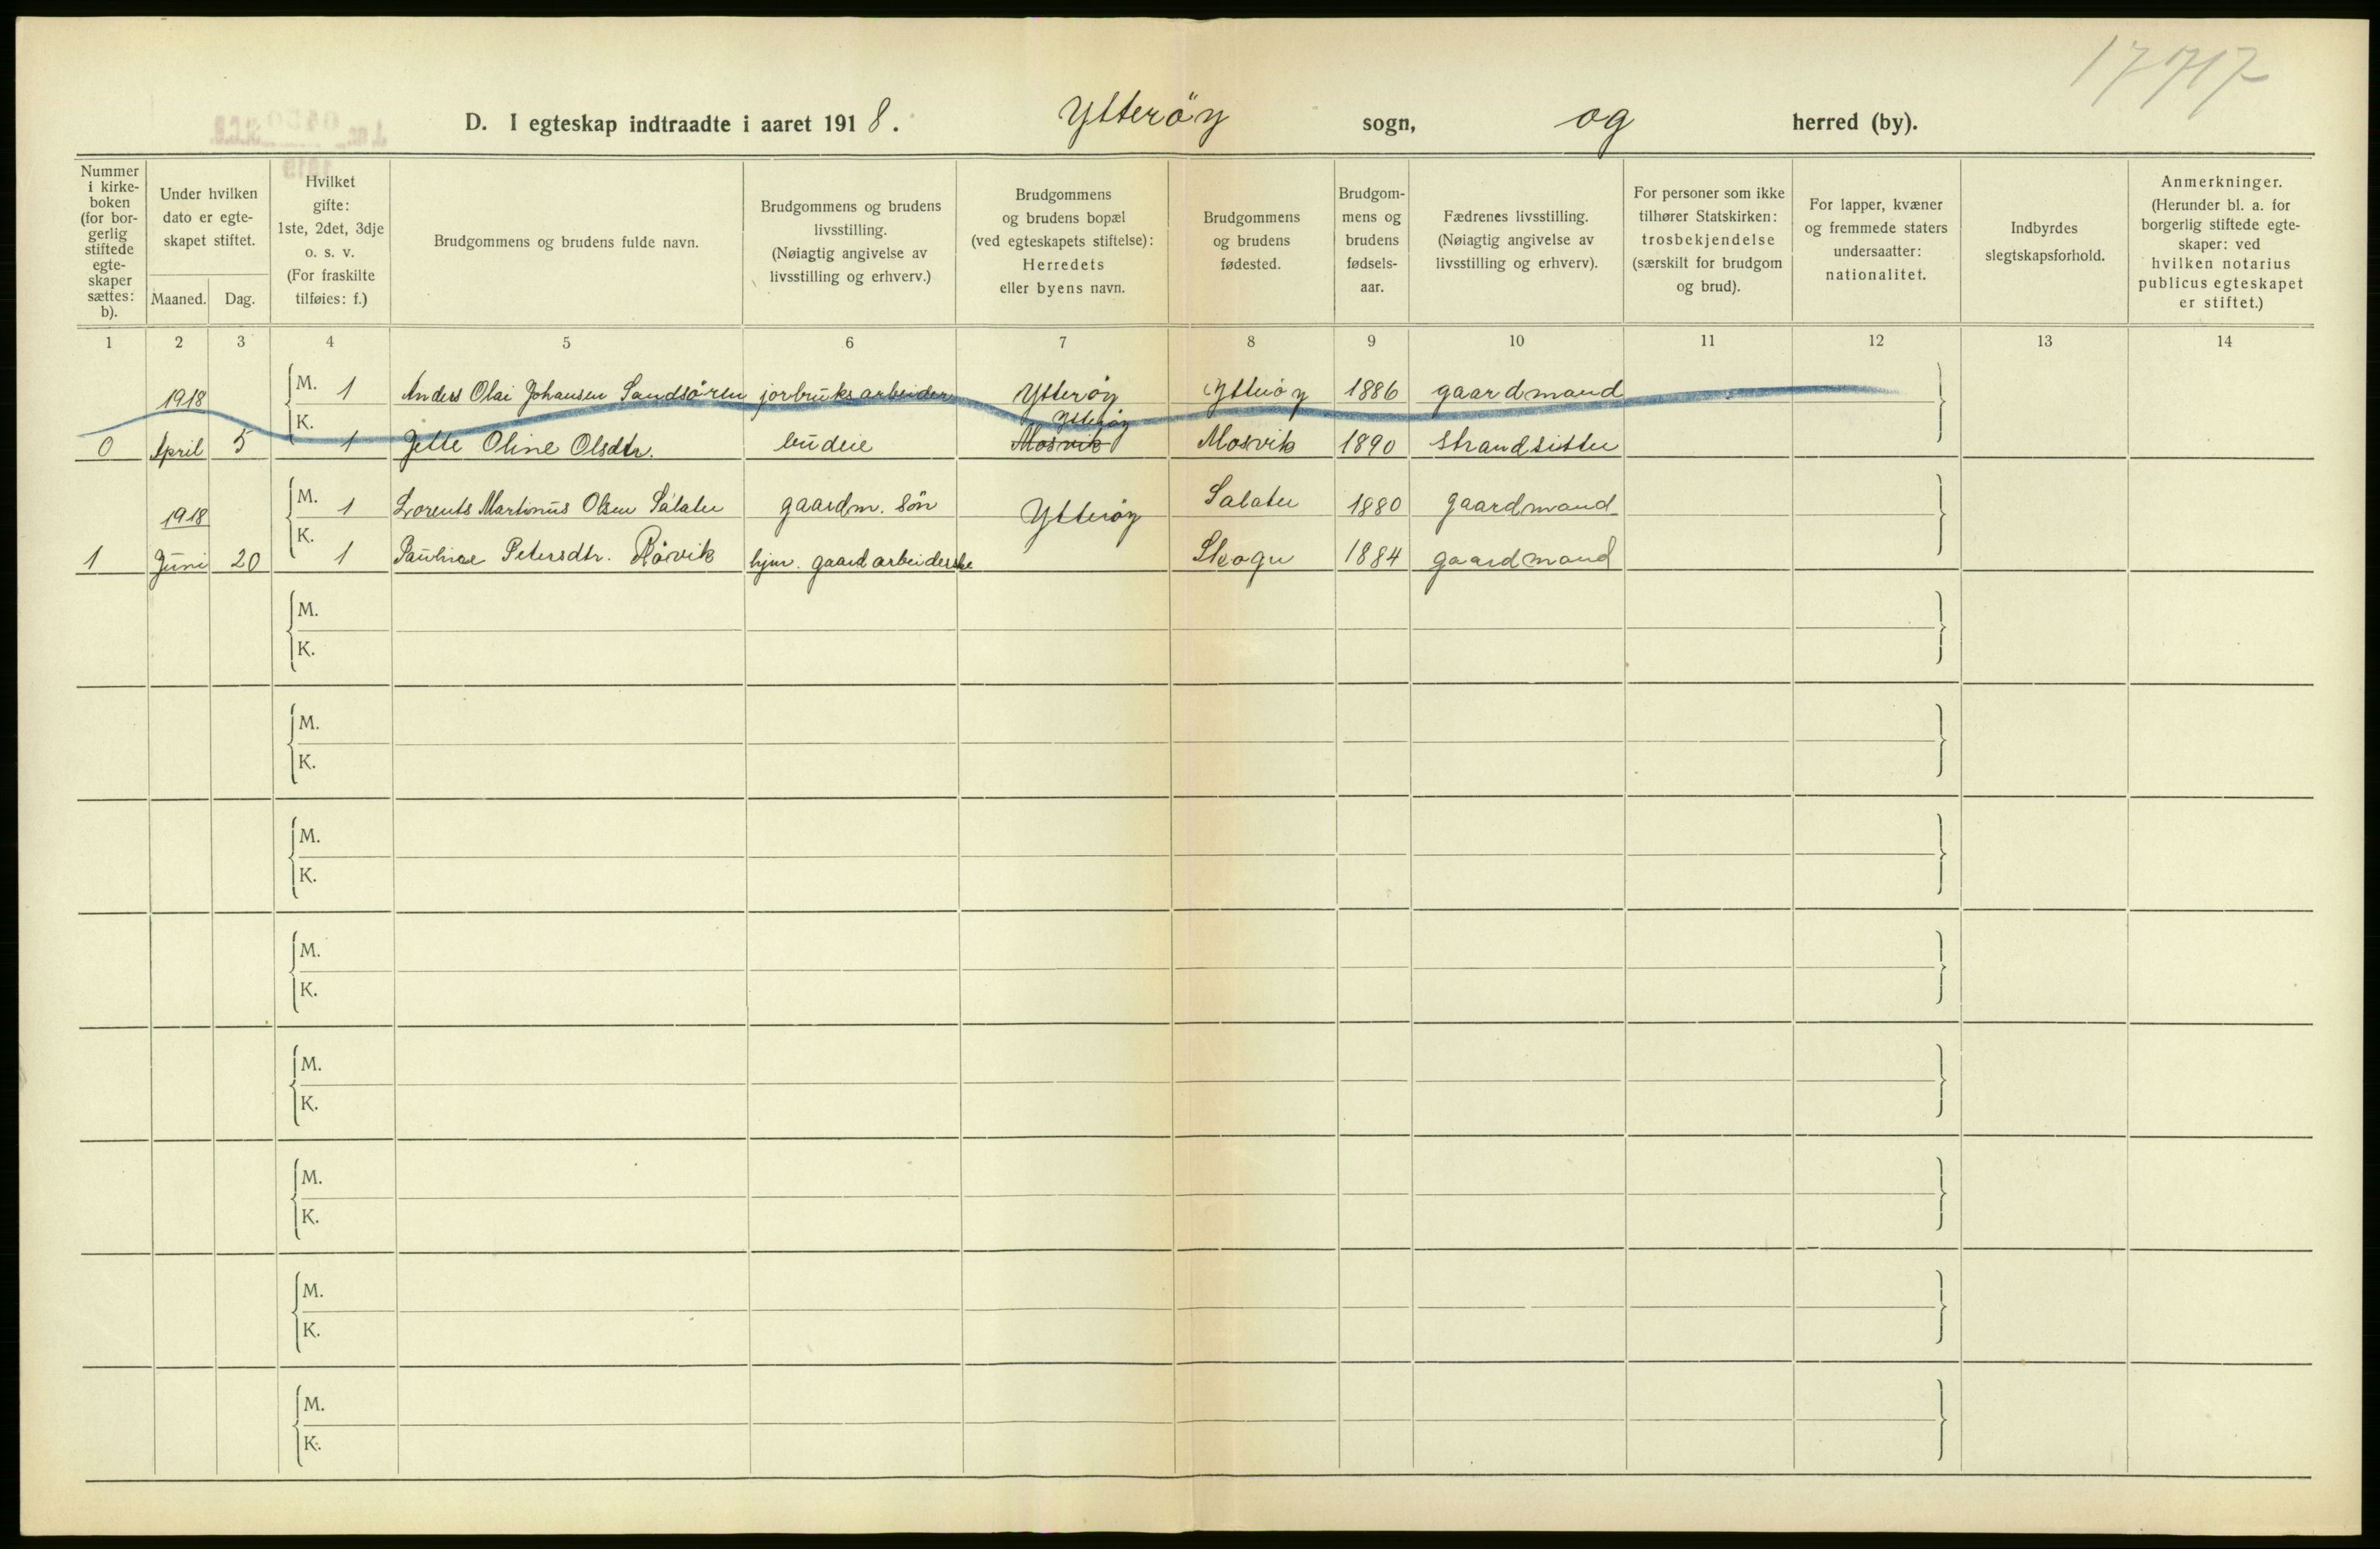 17717
D. I egteskap indtraadte i aaret 1918. Ytteröy sogn, og herred (by).
Nummer i kirkeboken (for borgerlig stiftede egteskaper sættes: b).
Under hvilken dato er egteskapet stiftet.
Maaned. Dag.
Hvilket gifte: 1ste, 2det, 3dje o. s. v. (For fraskilte tilføies: f.)
Brudgommens og brudens fulde navn.
Brudgommens og brudens livsstilling. (Nøiagtig angivelse av livsstilling og erhverv.)
Brudgommens og brudens bopæl (ved egteskapets stiftelse): Herredets eller byens navn.
Brudgommens og brudens fødested.
Brudgommens og brudens fødselsaar.
Fædrenes livsstilling. (Nøiagtig angivelse av livsstilling og erhverv).
For personer som ikke tilhører Statskirken: trosbekjendelse (særskilt for brudgom og brud).
For lapper, kvæner og fremmede staters undersaatter: nationalitet.
Indbyrdes slegtskapsforhold.
Anmerkninger. (Herunder bl. a. for borgerlig stiftede egteskaper: ved hvilken notarius publicus egteskapet er stiftet.)
1 2 3 4 5 6 7 8 9 10 11 12 13 14
1918 M. 1 Anders Olai Johansen Sandsören jorbruksarbeider Ytteröy Ytteröy 1886 gaardmand
Ytteröy
0 April 5 K. 1 Jette Oline Olsdtr. budeie Mosvik Mosvik 1890 strandsitter
1918 M. 1 Lorents Martinus Olsen Salater gaardm. sön Ytteröy Salater 1880 gaardmand
1 Juni 20 K. 1 Pauline Petersdtr. Röivik hjm. gaardarbeiderske Skogn 1884 gaardmand
M.
K.
M.
K.
M.
K.
M.
K.
M.
K.
M.
K.
M.
K.
M.
K.